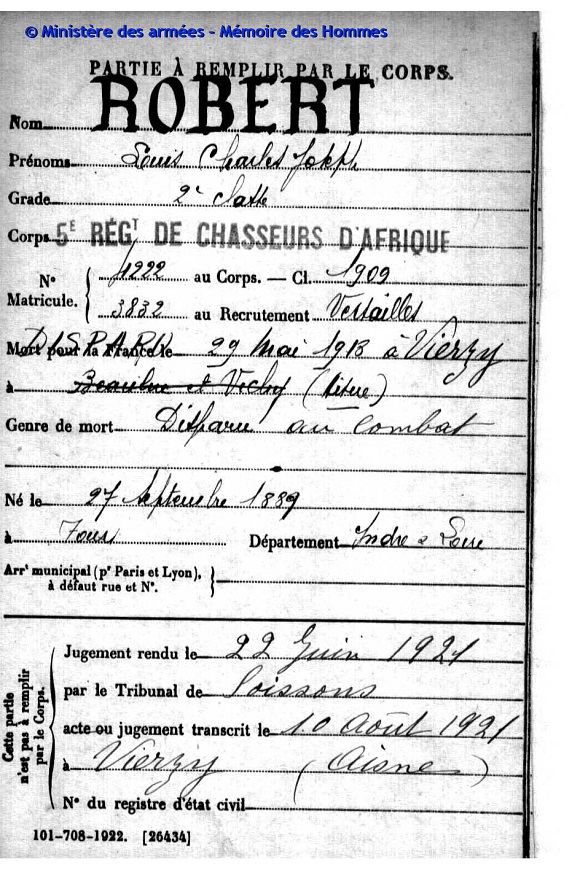 © Ministère des armées - Mémoire des Hommes
PARTIE À REMPLIR PAR LE CORPS.
Nom ROBERT
Prénoms Louis Charles Joseph
Grade 2e classe
Corps 5E RÉGT DE CHASSEURS D'AFRIQUE
N° Matricule. { 4222 au Corps. — Cl. 1909
3832 au Recrutement Versailles
Mort pour la France le DISPARU 29 Mai 1918 à Vierzy
à Beaulne et Vichy (Aisne)
Genre de mort Disparu au Combat
Né le 27 Septembre 1889
à Tours Département Indre & Loire
Arrt municipal (pr Paris et Lyon), à défaut rue et N°. }
Cette partie n'est pas à remplir par le Corps.
Jugement rendu le 22 Juin 1921
par le Tribunal de Soissons
acte ou jugement transcrit le 10 Août 1921
à Vierzy (Aisne)
N° du registre d'état civil
101-708-1922. [26434]